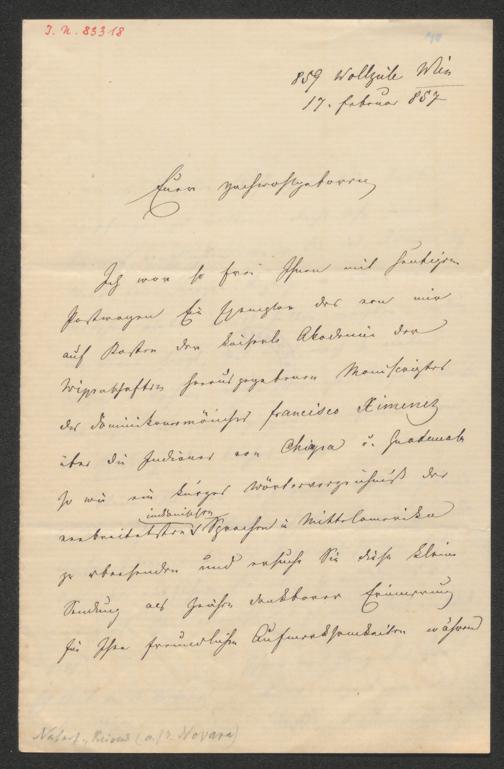 I. N. 83318
859 Wollzeile Wien
17. Februar 857
Euer Hochwohlgeboren
Ich war so frei Ihnen mit heutigem
Postwagen Ein Exemplar des von mir
auf Kosten der kaiserl. Akademie der
Wissenschaften herausgegebenen Manuscriptes
des Dominikanermönches Francisco Ximenez
über die Indianer von Chiapa u. Guatemala
so wie ein kurzes Wörterverzeichniß der
indianischen
verbreitetsten Sprachen in Mittelamerika
zu übersenden und ersuche Sie diese kleine
Sendung als Zeichen dankbarer Erinnerung
für Ihre freundlichen Aufmerksamkeiten während
Naturf. Reisend (a. d. Novara)